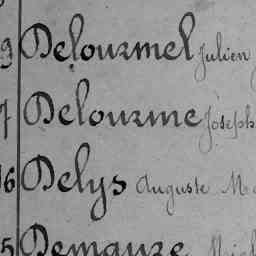 9 Delourmel Julien
7 Delourme Joseph
16 Delys Auguste
5 Demauze